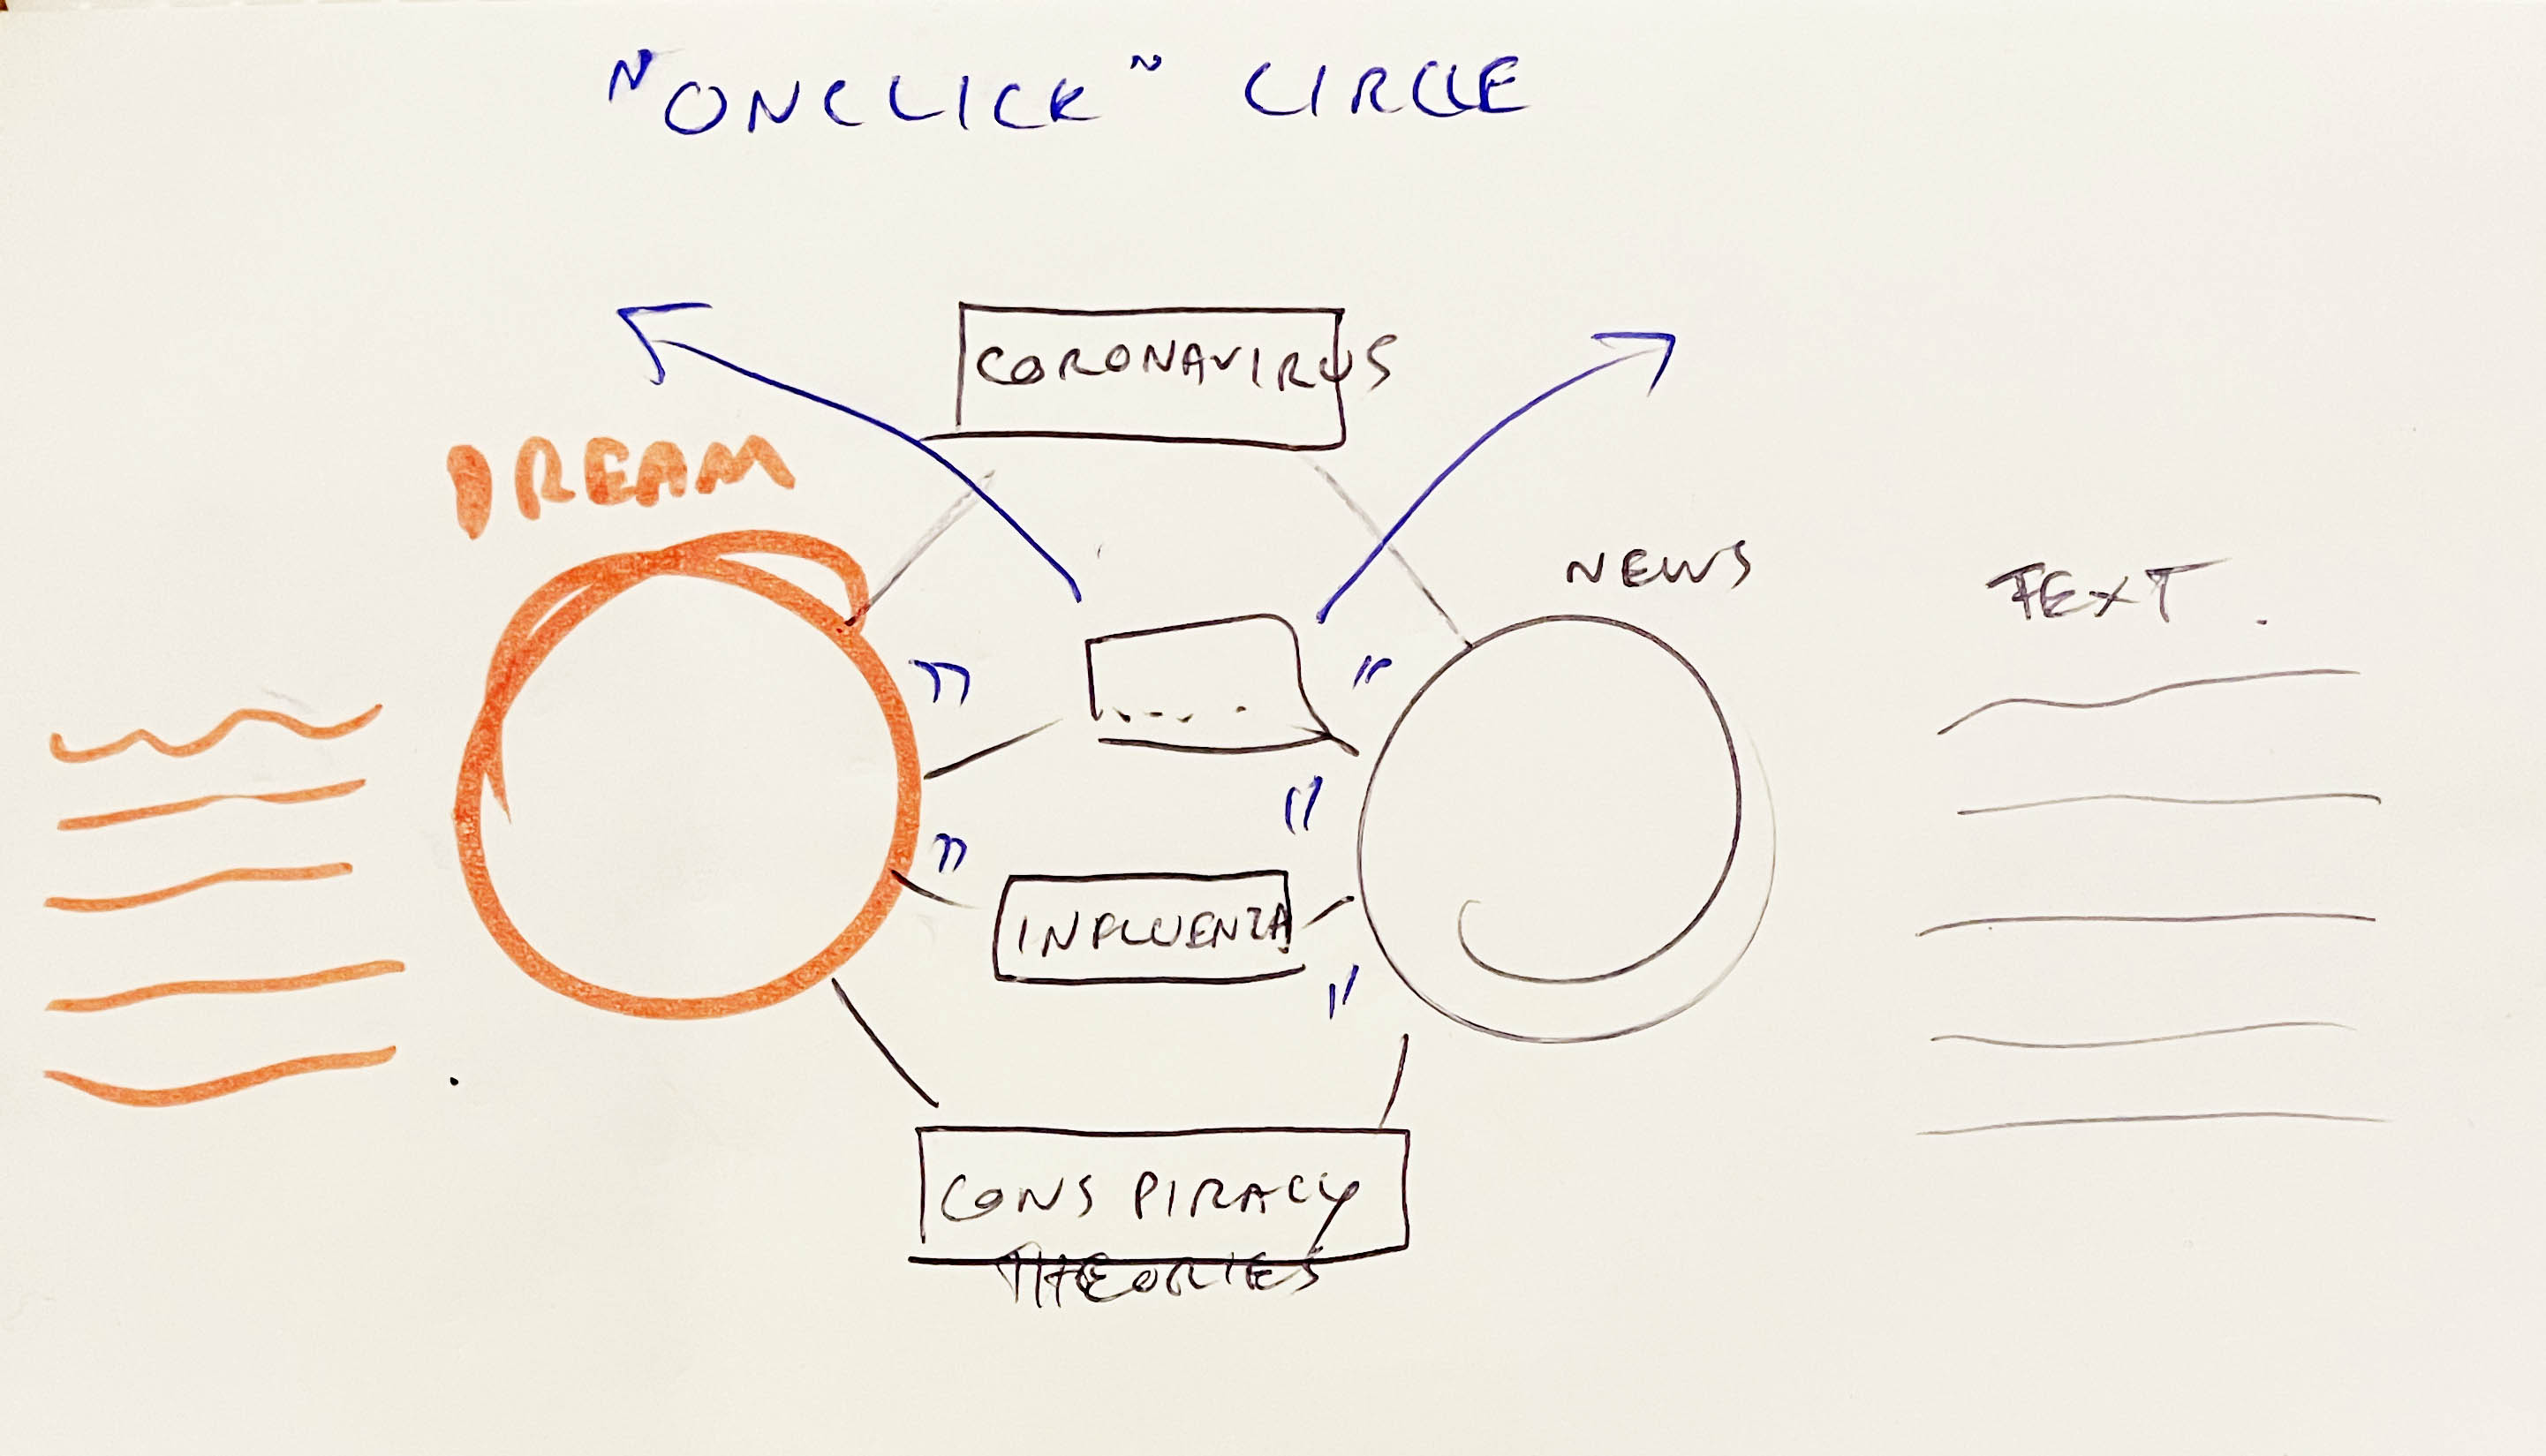 "ONCLICK" CIRCLE
CORONAVIRUS
DREAM
NEWS
TEXT.
....
INFLUENZA
CONSPIRACY
THEORIES